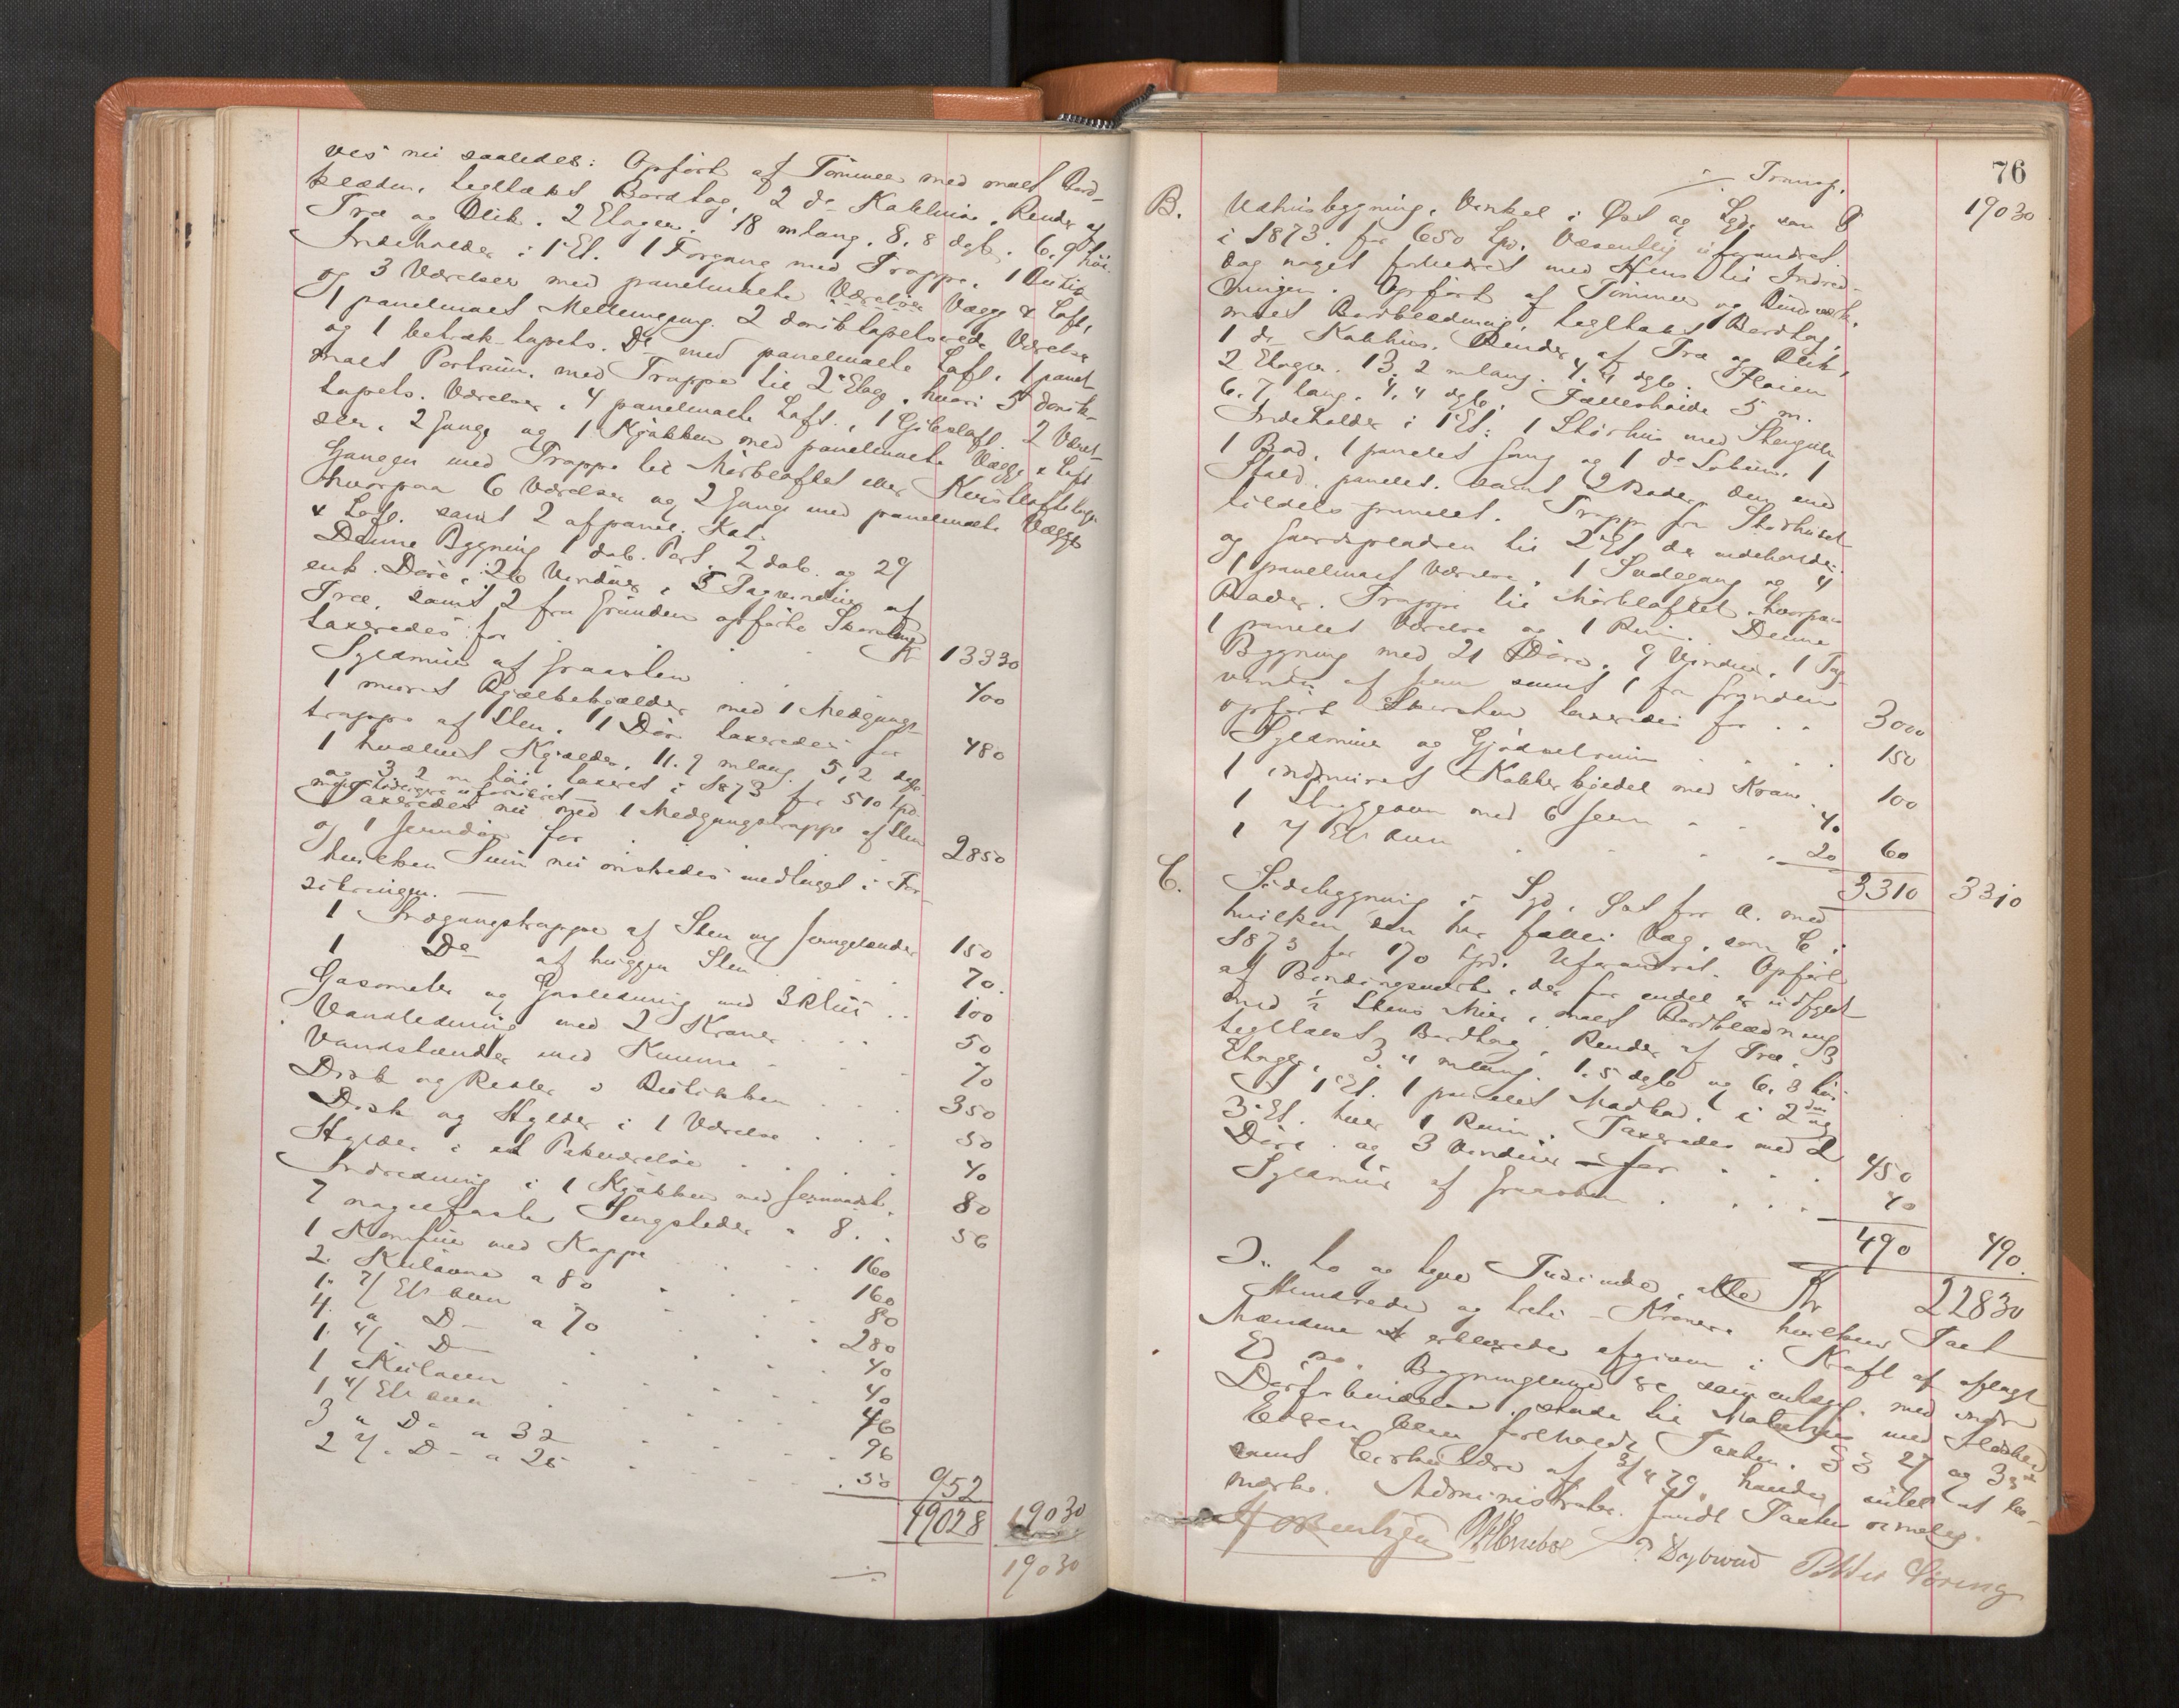 ves nu saaledes: Opført af Tømmer med malet Bord-
klædn. tegllakt Bordtag, 2 do Kakkhuse. Render af
Træ og Blik. 2 Etager. 18 m lang. 8,8 dyb. 6,9 høi.
Indeholder i 1 Et. 1 Forgang med Trappe, 1 Butik
og 3 Værelser med panelmalte Vægge & Loft,
1 panelmalet Mellemgang. 2 dobbltapetserede Værelser
og 1 betræk-tapets. Do med panelmalte Loft. 1 panel-
malt Portrum. med Trappe til 2 Etage, hvori 5
tapets. Værelser, 4 panelmalte Loft, 1 Gibsloft. 2 Værel-
ser, 2 Gange og 1 Kjøkken med panelmalte Vægge & Loft
Gangen med Trappe til Mørkloftet eller Kvistloftetage
hvorpaa 6 Værelser og 2 Gange med panelmalte Vægge
& Loft. samt 2 afpanel. Kot.
Denne Bygning 1 dob. Port, 2 dob. og 29
enk. Døre, 26 Vinduer, 5 Tagvinduer af
Træ, samt 2 fra Grunden opførte Skorstene
taxeredes for . . Kr 13330
Syldmur af Graasten . . . 400
1 muret Bjælkekjælder med 1 Nedgangs-
trappe af Sten, 1 Dør taxeredes for 480
1 hvælvet Kjælder, 11.9 m lang. 5,2 dyb.
og 3,2 m høi, taxeret i 1873 for 510 Spd.
Taxeredes nu med 1 Nedgangstrappe af Sten
og 1 Jerndør for . . . . 2850
hvilken Sum nu ønskedes medtaget i For-
sikringen. —
1 Indgangstrappe af Sten og Jerngelænder 150
1 Do af huggen Sten . . 70.
Gasometer og Gasledning med 3 Blus . . 100
Vandledning med 2 Kraner . . . 50
Vandstænder med Kumme . . . 70
Disk og Reoler i Butikken . . . 350
Disk og Hylder i 1 Værelse . . . 50
Hylder i et Pakværelse . . . . 40
Indredning i 1 Kjøkken med Jernvadsk. 80
7 nagelfaste Sengsteder a 8. . 56
1 Komfur med Kappe . . . . 160
2. Kulovne a 80 . . . 160
1. 7/ Et ovn . . . . 80
4. " D— a 70 . . . 280
1. 4/ D— . . . . 40
1 Kulovn . . . . 40
1 4/ Et ovn . . . . 46
3 " Do a 32 . . . . 96
2 4/. D— a 25 . . . . 50 952
19028 19030
19030
76
Transp. 19030
B. Udhusbygning, Vinkel i Øst og Syd. som B
i 1873. for 650 Spd. Væsentlig uforandret
dog noget forbedret med Hensn. til Indred-
ningen. Opført af Tømmer og Bindværk.
malet Bordklædning, tegllakt Bordtag,
1 do Kakkhus. Render af Træ og Blik,
2 Etager. 13,2 m lang. 4,4 dyb. Fløien
6,7 lang, 4,4 dyb. Fælleshøide 5 m.
Indeholder i 1 Et: 1 Størhus med Stengulv
1 Bod, 1 panelet Gang og 1 do Lokum, 1
Stald, panelet. samt 2 Boder, den ene
tildels panelet. Trappe fra Størhuset
og Gaardspladsen til 2 Et, der indeholder
1 panelmalet Værelse, 1 Svalegang og 4
Boder. Trappe til Mørkloftet, hvorpaa
1 panelet Værelse og 1 Rum. Denne
Bygning med 21 Døre, 9 Vinduer, 1 Tag-
vindu af Jern samt 1 fra Grunden
opført Skorsten taxeredes for . . 3000
Syldmur og Gjødselrum . . . . 150
1 indmuret Kokkekjedel med Krane . 100
1 Bryggeovn med 6 Jern . . 40
1 4/ Et ovn . . . . 20 60
3310 3310
C. Sidebygning i Syd, Øst for A. med
hvilken den har fælles Væg, som C i
1873 for 170 Spd. Uforandret. Opført
af Bindingsværk, der for endel er udfyldt
med 1/2 Stens Mur, malet Bordklædning
tegllakt Bordtag, Render af Træ, 3
Etager, 3,4 m lang. 1,5 dyb og 6,3 høi.
I 1 Et. 1 panelet Madbod, i 2den og
3 Et. hver 1 Rum. Taxeredes med 2
Døre og 3 Vinduer for . . . 450
Syldmur af Graasten . . . . 40
490 490.
D: to og tyve Tusinde, otte Kr 22830
Hundrede og treti — Kroner. hvilken Taxt
Mændene erklærede afgiven i Kraft af aflagt
Ed. Bygningerne med indre
Dørforbindelse
Taxten. §§ 27 og 33
samt Cirkulære af 3/4 79, havdes intet at be-
mærke. Administrator fandt Taxten rimelig.
Dybwad Petter Døring